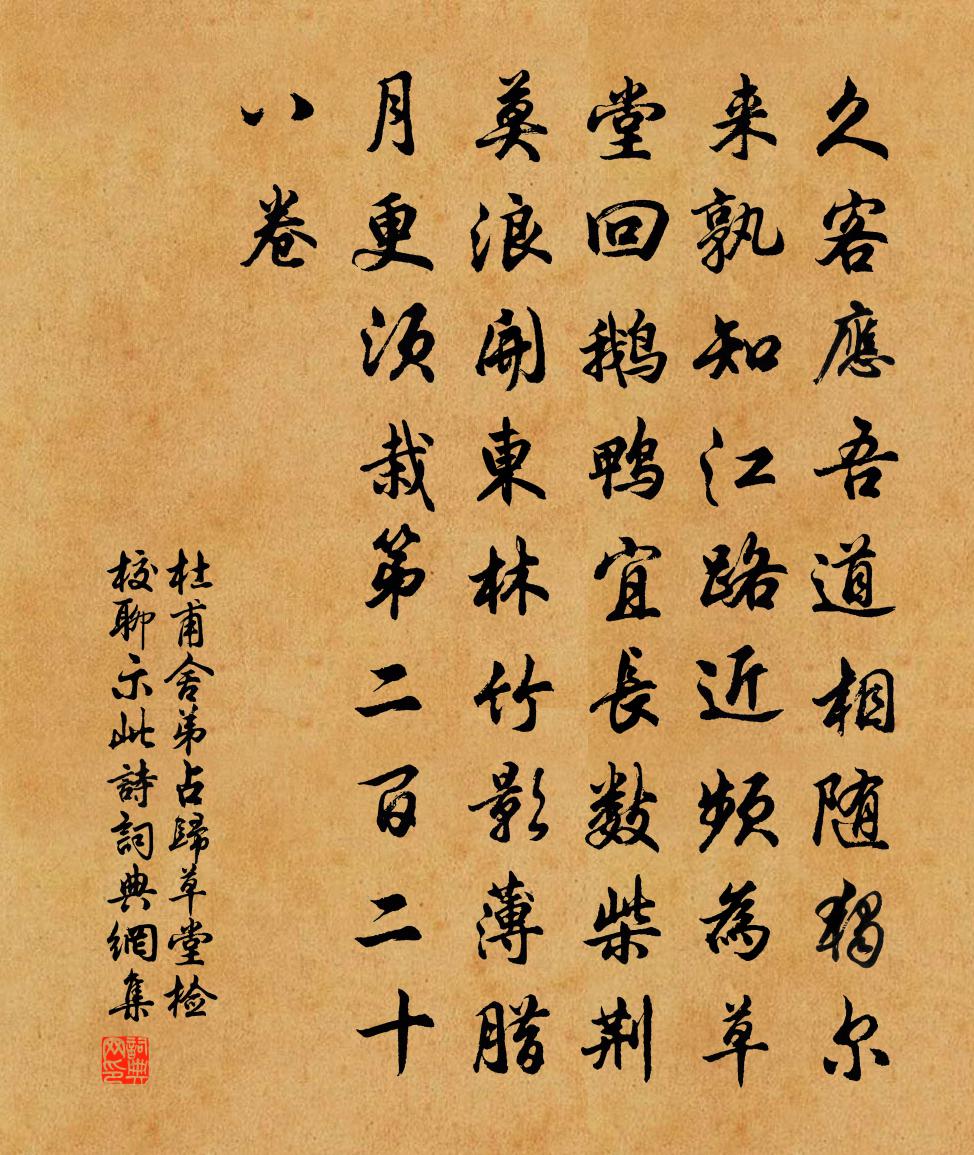 久客應吾道相随獨尔
来孰知江路近頻為草
堂回鹅鴨宜長数柴荆
莫浪開東林竹影薄腊
月更须栽第二百二十
八卷
杜甫舍弟占歸草堂检
校聊示此詩詞典網集
詞典网印